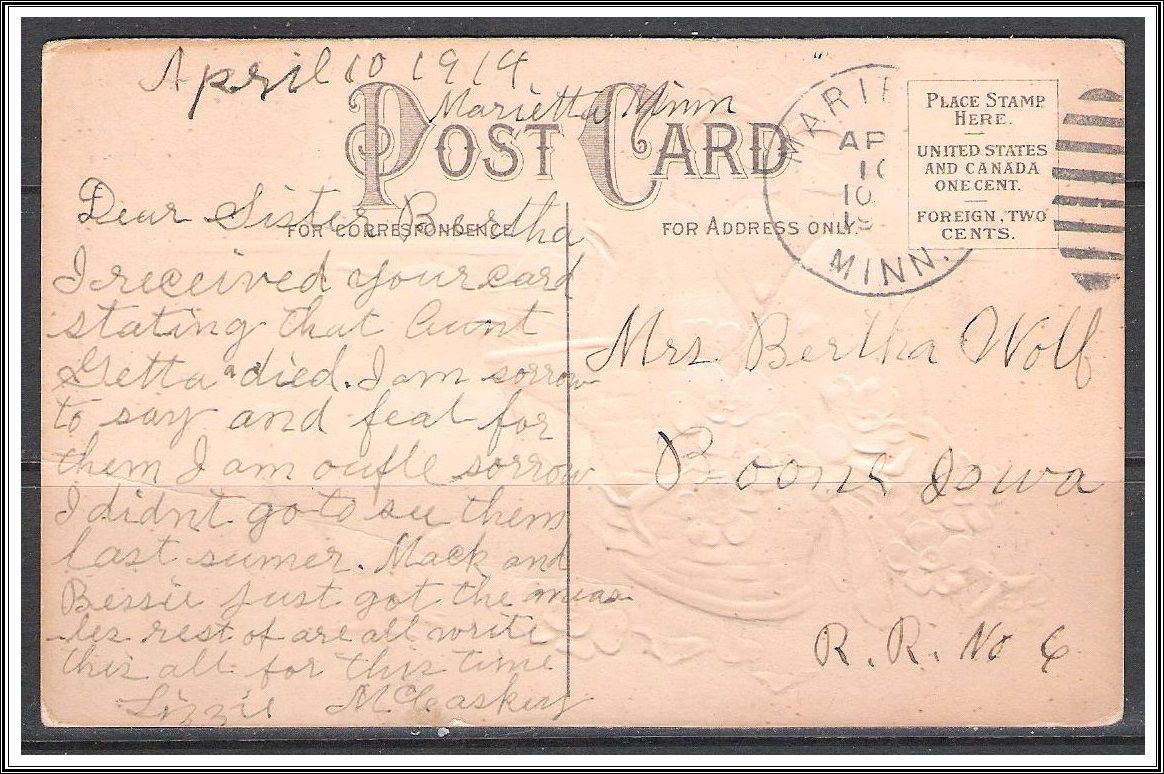 April 10 1914
Marietta Minn
POST CARD
FOR CORRESPONDENCE
FOR ADDRESS ONLY.
MARIE
AP
10
MINN.
PLACE STAMP
HERE.
UNITED STATES
AND CANADA
ONE CENT.
FOREIGN, TWO
CENTS.
Dear Sister Beertha
I received your card
stating that Aunt
Getta died. I am sorrow
to say and feal for
them I am oufl sorrow
I didnt go to see them
last sumer. Mack and
Bessie just got the meas
les rest of are all write
this all for this time
Lizzie McClaskey
Mrs. Bertha Wolf
Boone Iowa
R. R. No 6